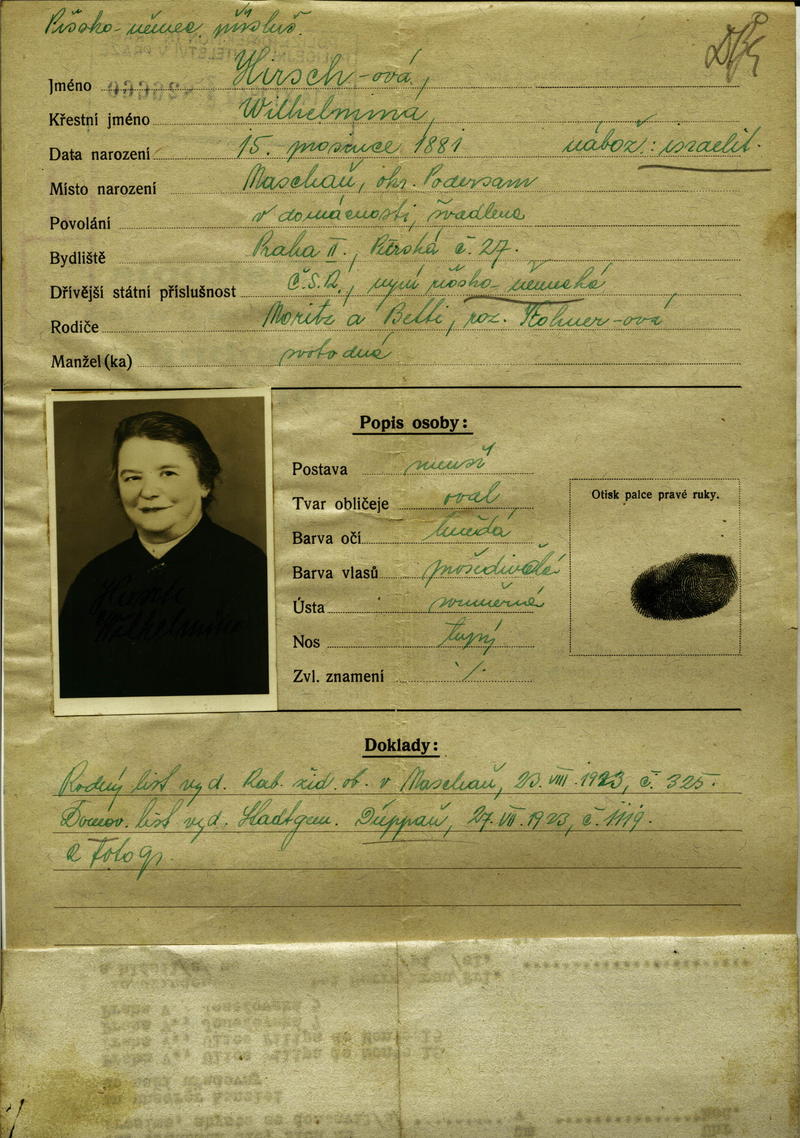 Říšsko-němec. přísluš.
Jméno Hirsch-ová,
Křestní jméno Wilhelmina,
Data narození 15. prosince 1881 nábož.: israelit.
Místo narození Maschau, okr. Podersam
Povolání v domácnosti, švadlena
Bydliště Praha II., č. 27.
Dřívější státní příslušnost Č.S.R., nyní říšsko-německá
Rodiče Moritz a Betti, roz. Kohner-ová
Manžel (ka) svobodná
Popis osoby:
Postava menší
Tvar obličeje oval
Barva očí hnědá
Barva vlasů prošedivělé
Ústa souměrná
Nos tupý
Zvl. znamení ./.
Otisk palce pravé ruky.
Hirsch
Wilhelmine
Doklady:
Rodný list vyd. Rab. žid. ob. v Maschau, 23. VIII. 1923, č. 325.
Domov. list vyd. Stadtgem. Duppau, 27. VII. 1923, č. 1119.
2 fotogr.